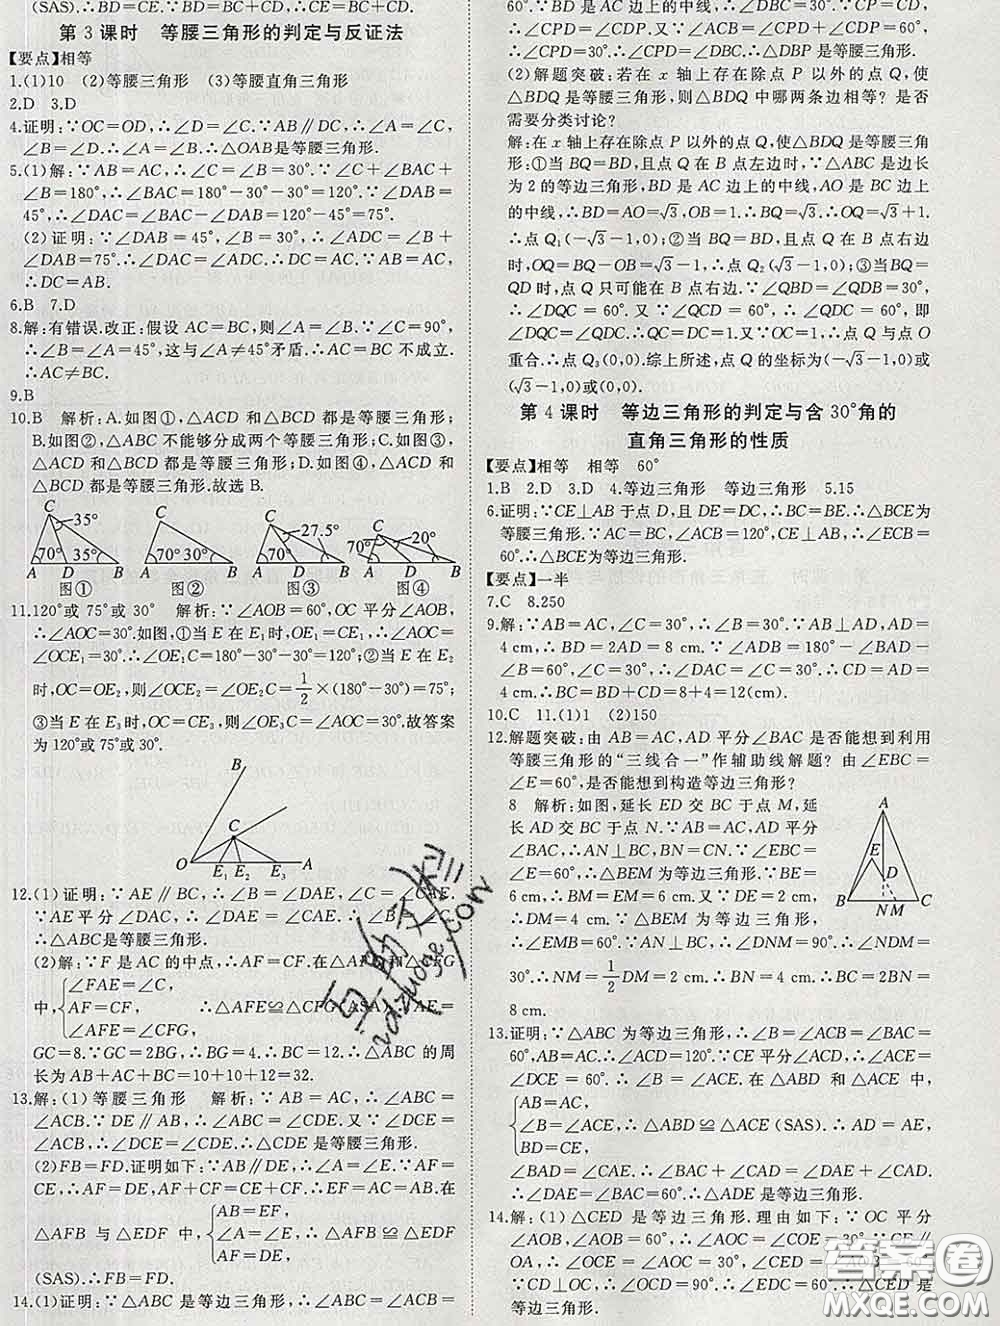 (SAS).∴BD=CE.∵BD=CD,∴BD=CD=CE.
第 3 课时　等腰三角形的判定与反证法
【要点】相等
1.(1)10　(2)等腰三角形　(3)等腰直角三角形
2.D　3.D
4.证明:∵OC=OD,∴∠D=∠C.∵AB∥DC,∴∠A=∠C,
∠B=∠D.∴∠A=∠B.∴△OAB是等腰三角形.
5.(1)解:∵AB=AC,∴∠C=∠B=30°.∵∠C+∠BAC+
∠B=180°,∴∠BAC=180°-30°-30°=120°.∵∠DAB=
45°,∴∠DAC=∠BAC-∠DAB=120°-45°=75°.
(2)证明:∵∠DAB=45°,∠B=30°,∴∠ADC=∠B+
∠DAB=75°.∴∠DAC=∠ADC.∴DC=AC.∵AB=AC,
∴DC=AB.
6.B　7.D
8.解:有错误.改正:假设 AC=BC,则∠A=∠B.∵∠C=90°,
∴∠B=∠A=45°,这与∠A≠45°矛盾.∴AC=BC 不成立.
∴AC≠BC.
9.B
10.B　解析:A.如图①,△ACD 和△BCD 都是等腰三角形;
B.如图②,△ABC 不能够分成两个等腰三角形;C.如图③,
△ACD 和△BCD 都是等腰三角形;D.如图④,△ACD 和
△BCD 都是等腰三角形.故选 B.
C 35° 70° 35° A D B 图①
C 70° 30° A B 图②
C 27.5° 70° A D B 图③
C 20° 70° 70° A D B 图④
11.120°或 75°或 30°　解析:∵∠AOB=60°,OC 平分∠AOB,
∴∠AOC=30°.如图,①当 E 在 E₁时,OE₁=CE₁.∵∠AOC=
∠OCE₁=30°,∴∠OE₁C=180°-30°-30°=120°;②当 E 在 E₂
时,OC=OE₂,则∠OCE₂=∠OE₂C=1/2×(180°-30°)=75°;
③当 E 在 E₃时,OC=CE₃,则∠OE₃C=∠AOC=30°.故答案
为 120°或 75°或 30°.
B C O E₁ E₂ E₃ A
12.(1)证明:∵AE∥BC,∴∠B=∠DAE,∠C=∠CAE.
∵AE平分∠DAC,∴∠DAE=∠CAE.∴∠B=∠C.
∴△ABC是等腰三角形.
(2)解:∵F 是 AC 的中点,∴AF=CF.在△AFE和△CFG
中,{∠FAE=∠C,
AF=CF,　∴△AFE≌△CFG(ASA).∴AE=
∠AFE=∠CFG,
GC=8.∵GC=2BG,∴BG=4.∴BC=12.∴△ABC 的周
长为 AB+AC+BC=10+10+12=32.
13.解:(1)等腰三角形　解析:∵AB=AC,∴∠ABC=
∠ACB.∵DE∥AB,∴∠ABC=∠CDE.又∵∠DCE=
∠ACB,∴∠DCE=∠CDE.∴△CDE是等腰三角形.
(2)FB=FD.证明如下:∵AB∥DE,∴∠A=∠E.∵AF=
CE,∴AF=DE,AF+CF=CE+CF.∴EF=AC=AB.在
△AFB 与△EDF 中,{AB=EF,
∠A=∠E,　∴△AFB≌△EDF
AF=DE,
(SAS).∴FB=FD.
14.(1)证明:∵△ABC是等边三角形,∴∠BAC=∠ABC=
60°.∵BD=CP,∴BD+BP=CP+BP,即DP=BC.∴
△ACF=∠CPD.又∵∠ACF=∠CBP,∴∠CBP=
∠CPD.∴∠DBP=∠DPB.∴△DBP是等腰三角形.
(2)解题突破:若在 x 轴上存在除点 P 以外的点 Q,使
△BDQ 是等腰三角形,则△BDQ 中哪两条边相等?是否
需要分类讨论?
解:在 x 轴上存在除点 P 以外的点 Q,使△BDQ 是等腰三角
形:①当 BQ=BD,且点 Q 在 B 点左边时,∵△ABC是边长
为 2 的等边三角形,BD 是 AC 边上的中线,AO 是 BC 边上
的中线,∴BD=AO=√3,OB=1.∴BQ=√3.∴OQ=√3+1.
∴点 Q₁(-√3-1,0);②当 BQ=BD,且点 Q 在 B 点右边
时,OQ=BQ-OB=√3-1.∴点 Q₂(√3-1,0);③当 BQ=
QD 时,点 Q 只可能在 B 点右边.∵∠BDQ=∠QDB=30°,
∴∠DQC = 60°. 又∵∠QCD = 60°,∴∠QDC = 60°, 即
∠DQC=∠QDC.∴QC=DC=1.又∵OC=1,∴点 Q 与点 O
重合.∴点 Q₃(0,0).综上所述,点 Q 的坐标为(-√3-1,0)或
(√3-1,0)或(0,0).
第 4 课时　等边三角形的判定与含 30°角的
直角三角形的性质
【要点】相等　相等　60°
1.B　2.D　3.D　4.等边三角形　等边三角形　5.15
6.证明:∵CE⊥AB 于点 D,且 DE=DC,∴BC=BE.∴△BCE为
等腰三角形.∵AC=BC,∠ACB=120°,CE⊥AB,∴∠ECB=
60°.∴△BCE为等边三角形.
【要点】一半
7.C　8.250
9.解:∵AB=AC,∠C=30°,∴∠B=30°.∵AB⊥AD,AD=
4 cm,∴BD=2AD=8 cm.∵∠ADB=180°-∠BAD-
∠B=60°,∠C=30°,∴∠DAC=∠C=30°.∴CD=AD=
4 cm.∴BC=BD+CD=8+4=12(cm).
10.C　11.(1)1　(2)150
12.解题突破:由 AB=AC,AD 平分∠BAC 是否能想到利用
等腰三角形的“三线合一”作辅助线解题?由∠EBC
=∠E=60°,是否能想到构造等边三角形?
8　解析:如图,延长 ED 交 BC 于点 M,延
长 AD 交 BC 于点 N.∵AB=AC,AD 平分
∠BAC,∴AN⊥BC,BN=CN.∵∠EBC=
∠E=60°,∴△BEM为等边三角形.
∴BM=EM=BE=6 cm.∵DE=2 cm,
∴DM=4 cm.∵△BEM 为等边三角形,
∴∠EMB=60°.∵AN⊥BC,∴∠DNM=90°.∴∠NDM=
30°.∴NM=1/2DM=2 cm.∴BN=4 cm.∴BC=2BN=
8 cm.
A E D B N M C
13.证明:∵△ABC 为等边三角形,∴∠B=∠ACB=∠BAC=
60°,AB=AC.∴∠ACD=120°.∵CE平分∠ACD,∴∠ACE=
∠DCE = 60°. ∴∠B = ∠ACE. 在△ABD 和△ACE 中,
{AB=AC,
∠B=∠ACE,∴△ABD≌△ACE(SAS).∴AD=AE,
BD=CE,
∠BAD=∠CAE.∴∠BAD-∠CAD=∠CAE-∠CAD.
∴∠DAE=∠BAC=60°.∴△ADE是等边三角形.
14.解:(1)△CED 是等边三角形.理由如下:∵OC 平分
∠AOB,∠AOB=60°,∴∠AOC=∠COE=30°.∵CE∥
OA,∴∠OCE=∠AOC=30°,∠CED=∠AOB=60°.
∵CD⊥OC,∴∠OCD=90°.∴∠EDC=60°.∴△CED是
等边三角形.
答案圈
MXQE.COM